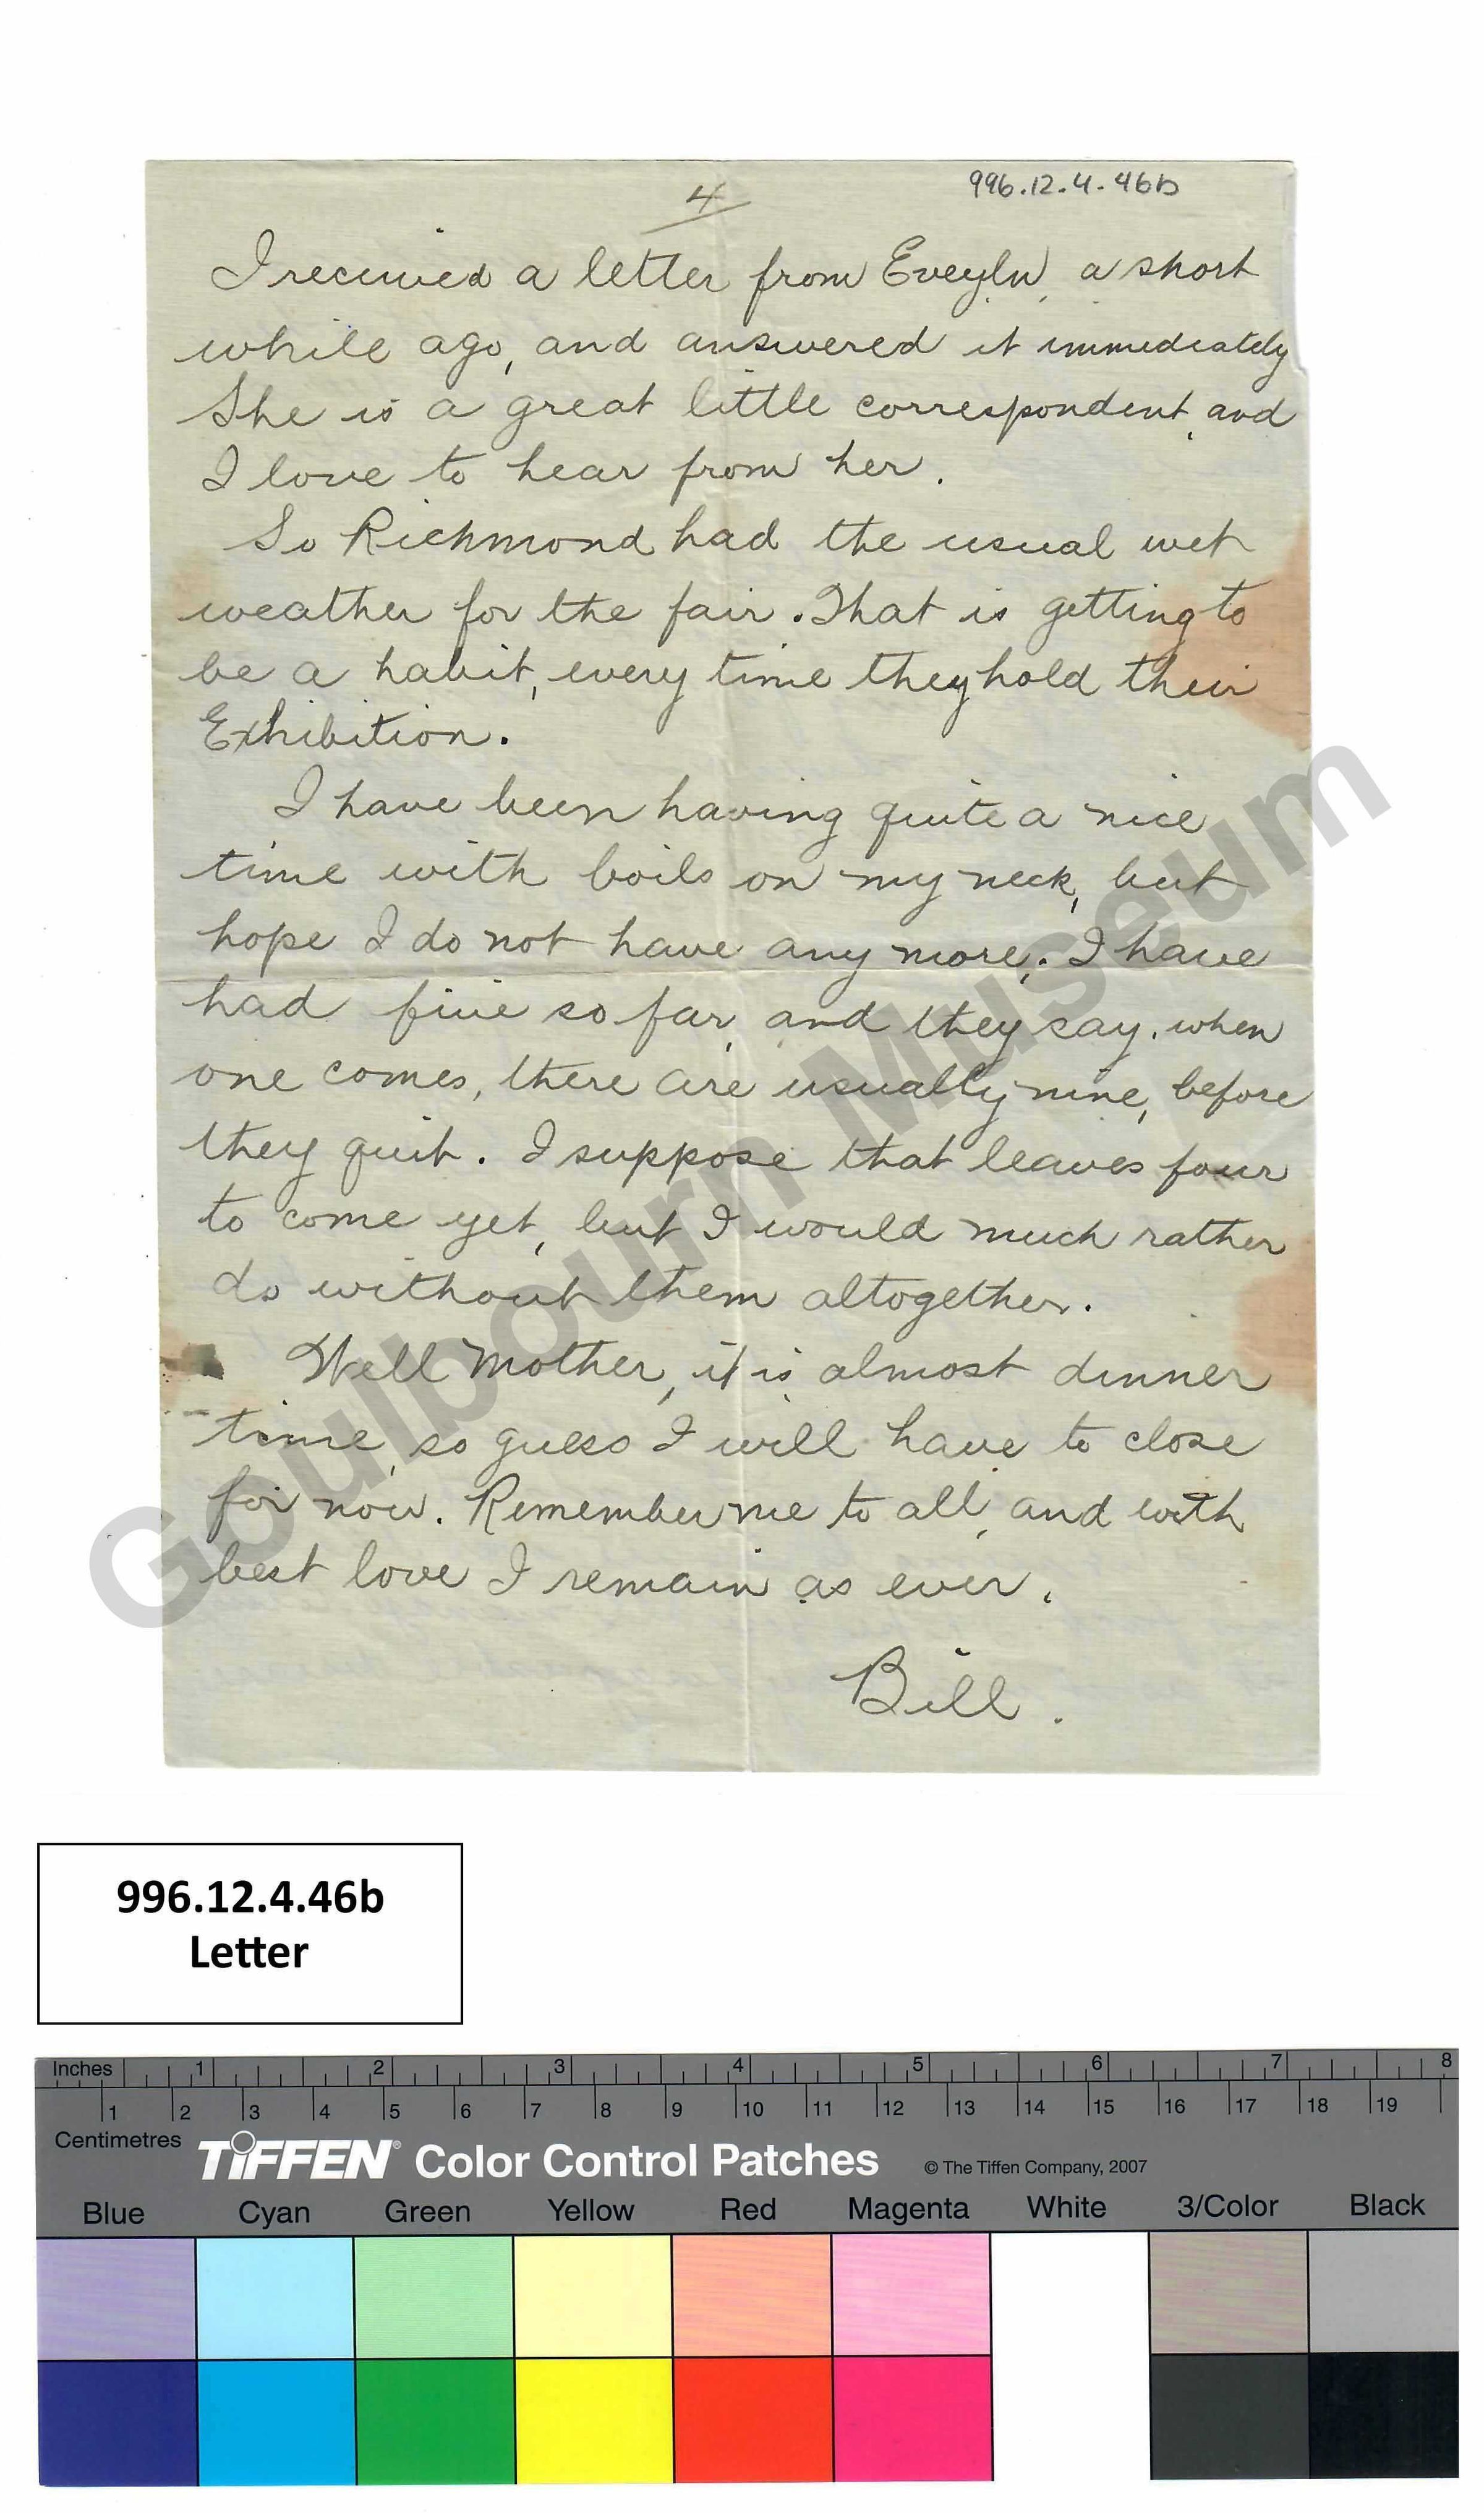 4
996.12.4.46b
I received a letter from Eveyln, a short
while ago, and answered it immediately
She is a great little correspondent, and
I love to hear from her.
So Richmond had the usual wet
weather for the fair. That is getting to
be a habit, every time they hold their
Exhibition.
I have been having quite a nice
time with boils on my neck, but
hope I do not have any more. I have
had five so far, and they say, when
one comes, there are usually nine, before
they quit. I suppose that leaves four
to come yet, but I would much rather
do without them altogether.
Well Mother, it is almost dinner
time, so guess I will have to close
for now. Remember me to all, and with
best love I remain as ever.
Bill.
Goulbourn Museum
996.12.4.46b
Letter
Inches 1 2 3 4 5 6 7 8
1 2 3 4 5 6 7 8 9 10 11 12 13 14 15 16 17 18 19
Centimetres
TIFFEN® Color Control Patches © The Tiffen Company, 2007
Blue Cyan Green Yellow Red Magenta White 3/Color Black